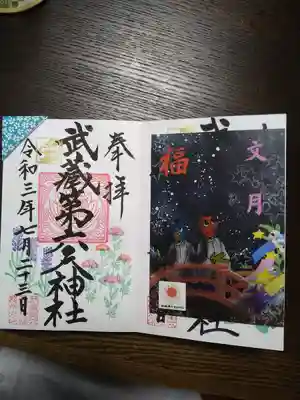 奉拝
武蔵第六天神社
令和三年七月二十三日
文月
福
社